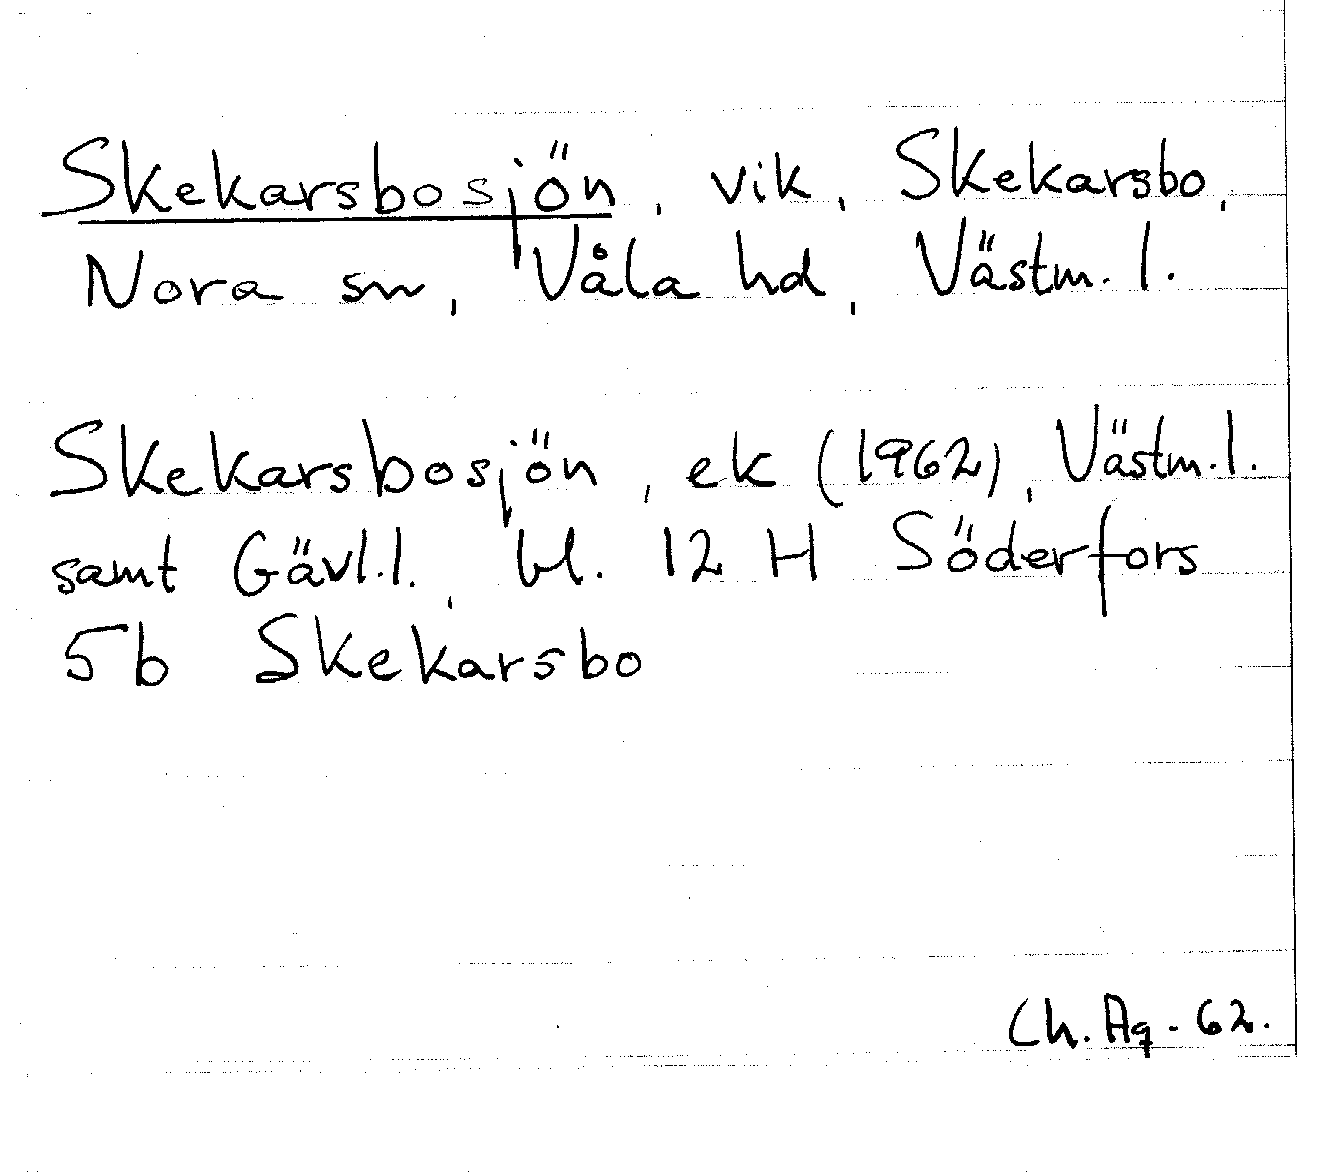 Skekarsbosjön, vik, Skekarsbo,
Nora sn, Våla hd, Västm. l.
Skekarsbosjön, ek (1962), Västm. l.
samt Gävl. l., bl. 12 H Söderfors
5b Skekarsbo
Ch. Ag. -62.